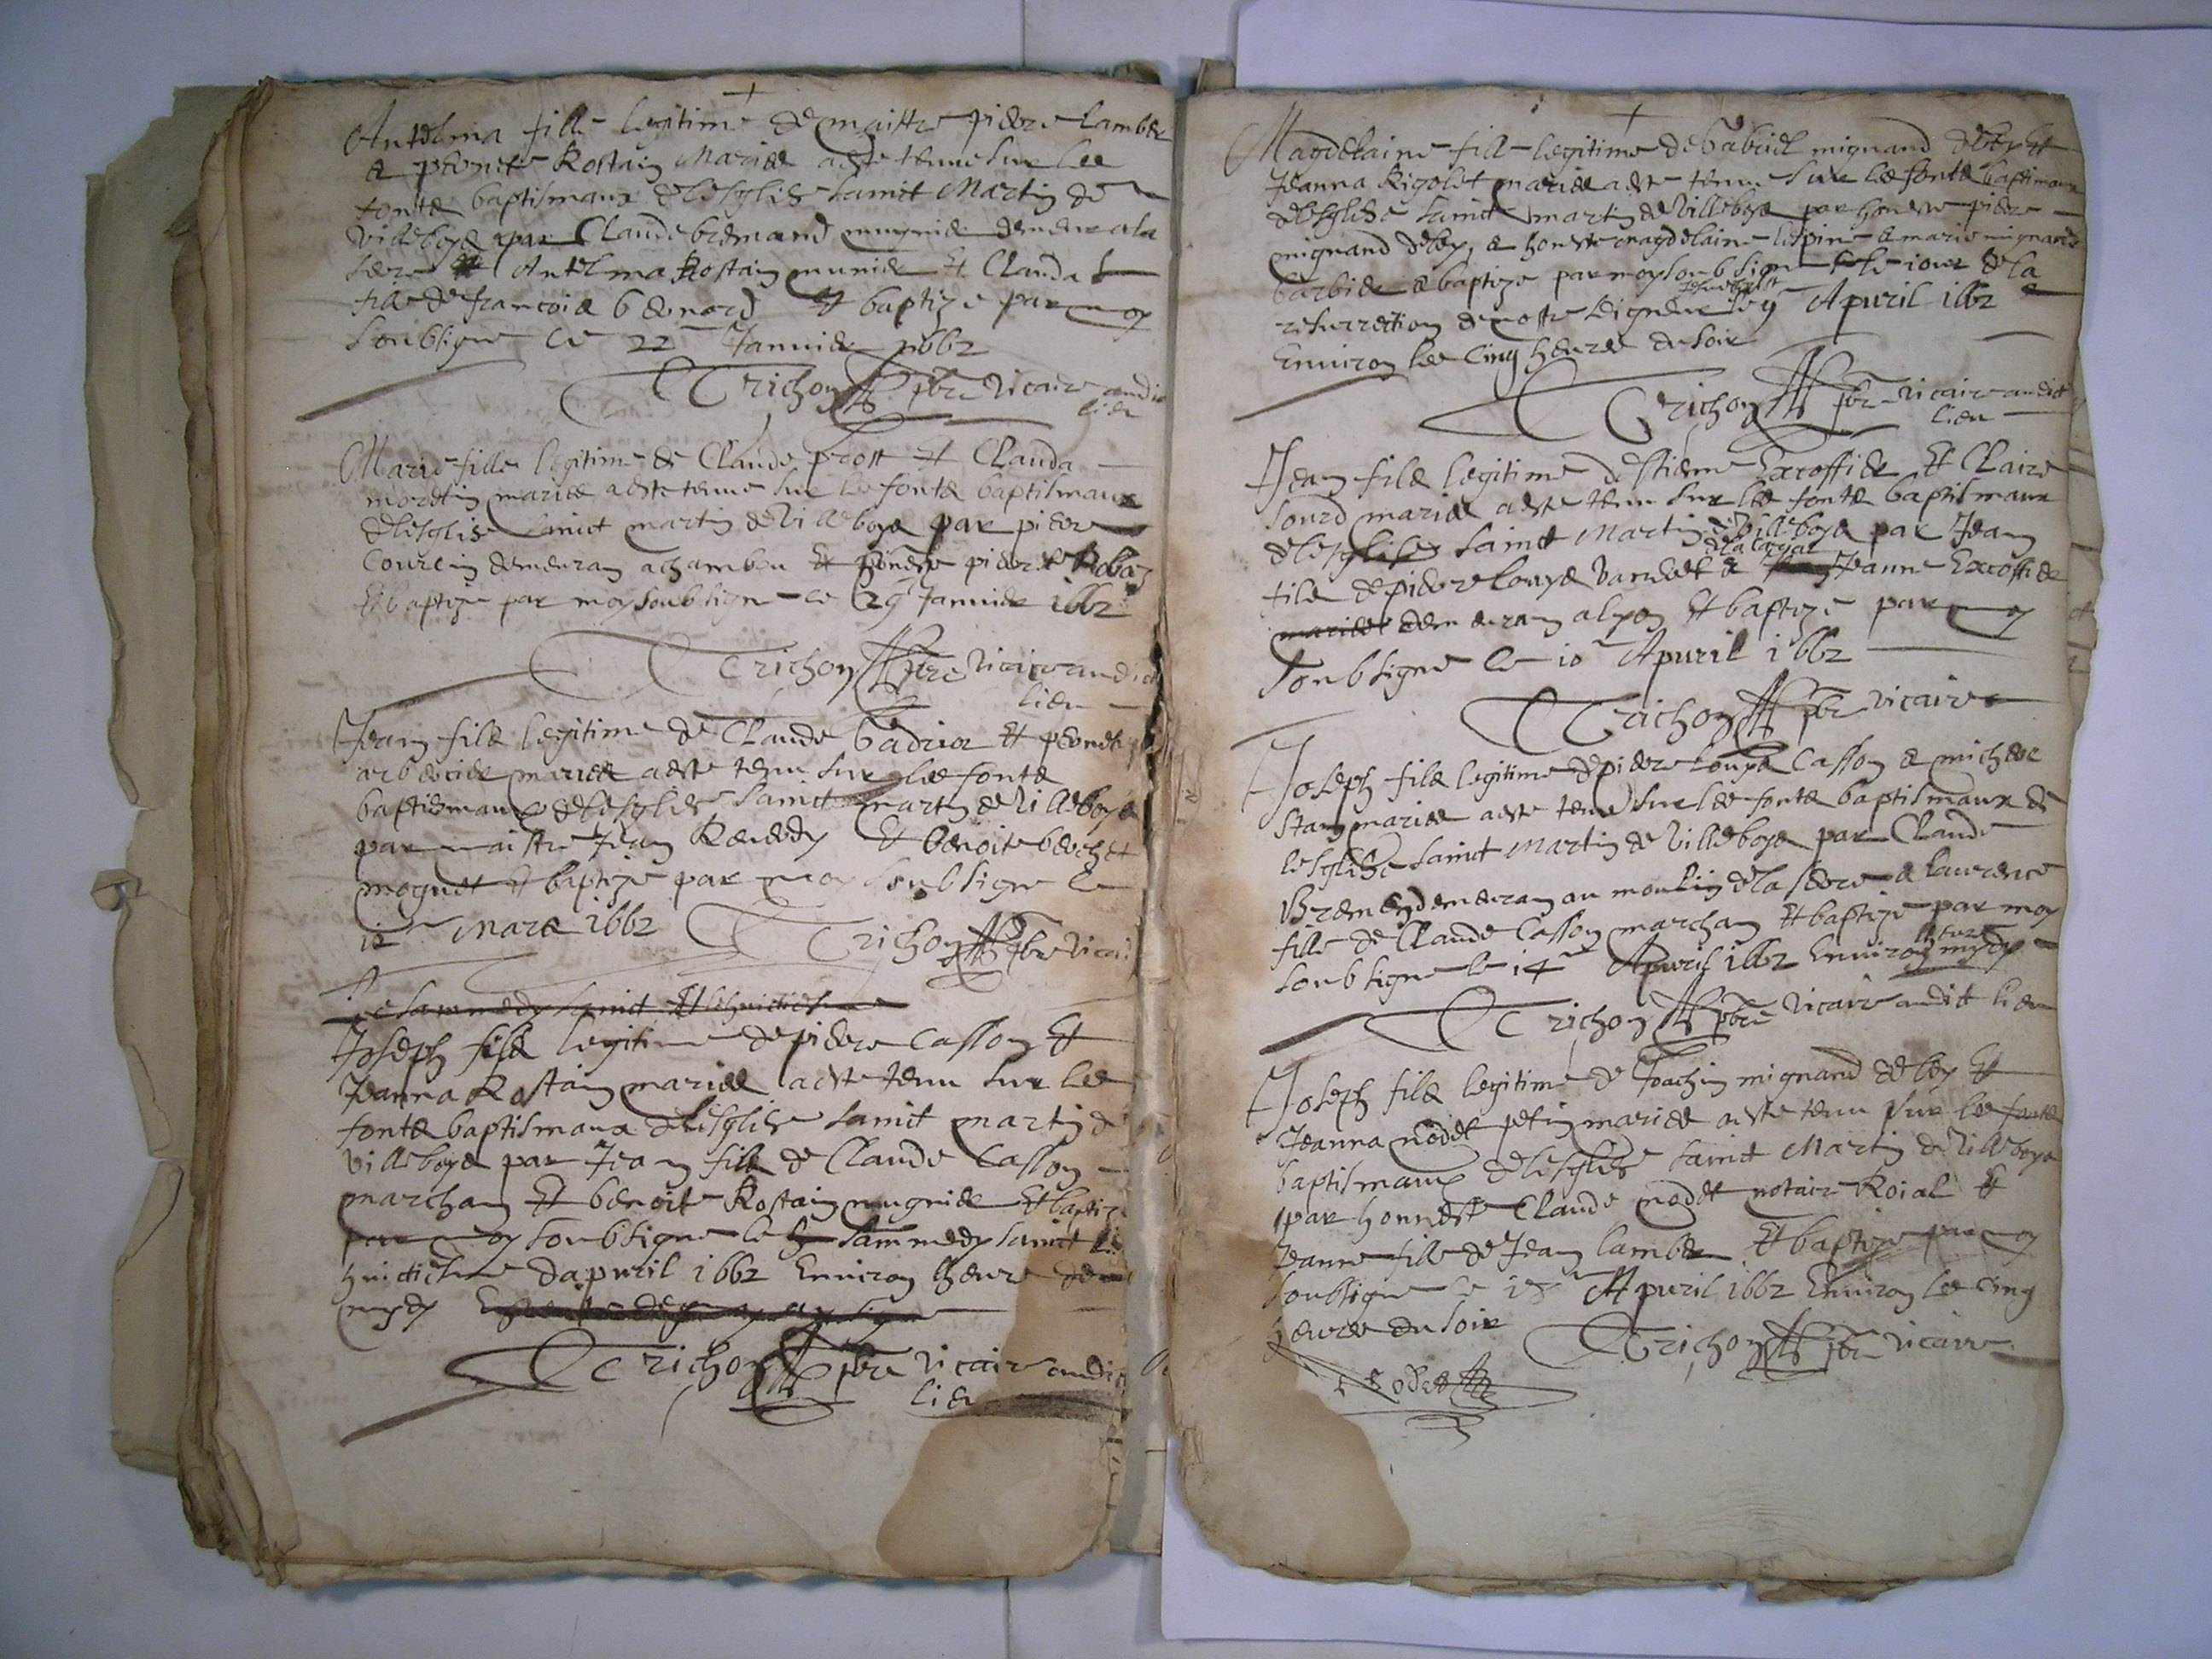 Antelma fille legitime de maittre piere Lamber
& pronete Rostaing Mariés a esté tenue sur les
fontz baptismaux de lesglise sainct Martin de
Villeboys par Claude bremand mugnié demeur a la
serre et Antelma Rostaing munier et Clauda
fille de francois bernard et baptize par moy
soubsigne le 22 Januier 1662
Trichon pbre Vicaire audict
lieu
Marie fille legitime de Claude prost et Clauda
moretin mariés a esté tenue sur les fontz baptismaux
de lesglise sainct martin de Villeboys par piere
demeuran a chambou et honeste
Et baptize par moy soubsigne le 29 Januier 1662
Trichon pbre Vicaire audict
lieu
Jean filz legitime de Claude et
mariés a esté tenu sur les fontz
baptismaux de lesglise sainct martin de Villeboys
par maittre Jean et benoite
et baptize par moy soubsigne le
Mars 1662 Trichon pbre Vicai
le sammedy sainct et le huictiesme
Joseph filz legitime de piere Casson et
Jeanna Rostaing mariés a esté tenu sur les
fontz baptismaux de lesglise sainct martin de
Villeboys par Jean filz de Claude Casson
marchan et benoite Rostaing mugnier et baptize
par moy soubsigne le sammedy sainct le
huictiesme dapuril 1662 Enuiron lheure de
mydy
Trichon pbre Vicaire audict
lieu
Magdelaine fille legitime de Gabriel mignand de bey et
Jeanna Rigolet mariés a esté tenue sur les fontz baptismaux
de lesglise sainct martin de Villeboys par honeste piere
mignand de bey, & honeste magdelaine & marie mignand
barbier & baptize par moy soubsigne le iour de la
resurrection de nostre seigneur le 9 Apuril 1662
Enuiron les Cinq heures du soir
Trichon pbre Vicaire audict
lieu
Jean filz legitime destienne Excoffier et Claire
sourd mariés a esté tenu sur les fontz baptismaux
de lesglise sainct Martin de Villeboys par Jean
filz de piere louys & Jeanne Excoffier
mariés demeuran a lyon et baptize par moy
soubsigne le 10 Apuril 1662
Trichon pbre Vicaire
Joseph filz legitime de piere louys Casson &
mariés a esté tenu sur les fontz baptismaux de
lesglise sainct Martin de Villeboys par Claude
demeuran au moulin de la serre & laurence
fille de Claude Casson marchan et baptize par moy
soubsigne le 14 Apuril 1662 Enuiron lheure mydy
Trichon pbre Vicaire audict lieu
Joseph filz legitime de Joachin mignand de bey et
Jeanna nodet petin mariés a esté tenu sur les fontz
baptismaux de lesglise sainct Martin de Villeboys
par honneste Claude nodet notaire Roial et
Jeanne fille de Jean lamber et baptize par moy
soubsigne le 18 Apuril 1662 Enuiron les Cinq
heures du soir
Trichon pbre Vicaire
Nodet